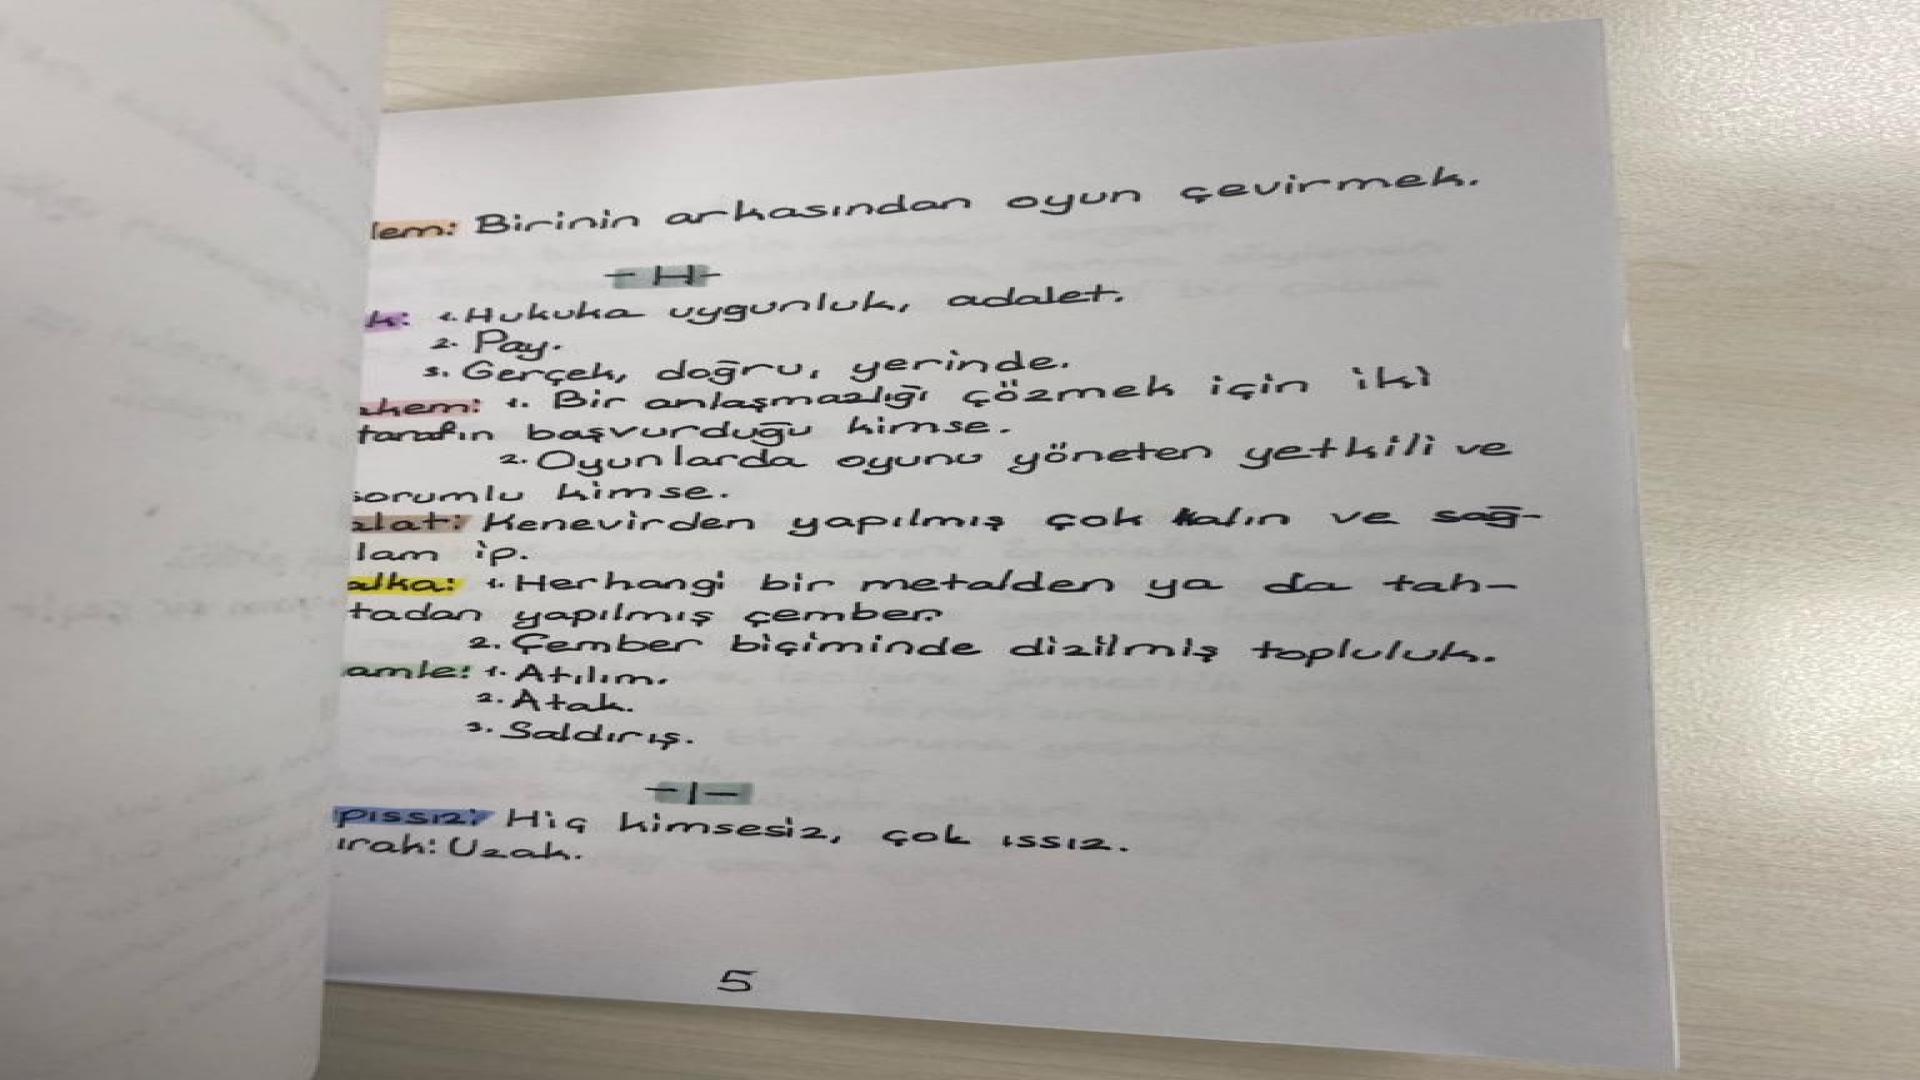 lem: Birinin arkasından oyun çevirmek.
-H-
k: 1. Hukuka uygunluk, adalet.
2. Pay.
3. Gerçek, doğru, yerinde.
akem: 1. Bir anlaşmazlığı çözmek için iki
tarafın başvurduğu kimse.
2. Oyunlarda oyunu yöneten yetkili ve
sorumlu kimse.
alat: Kenevirden yapılmış çok kalın ve sağ-
lam ip.
alka: 1. Herhangi bir metalden ya da tah-
tadan yapılmış çember.
2. Çember biçiminde dizilmiş topluluk.
amle: 1. Atılım.
2. Atak.
3. Saldırış.
-I-
ıpıssız: Hiç kimsesiz, çok ıssız.
ırak: Uzak.
5